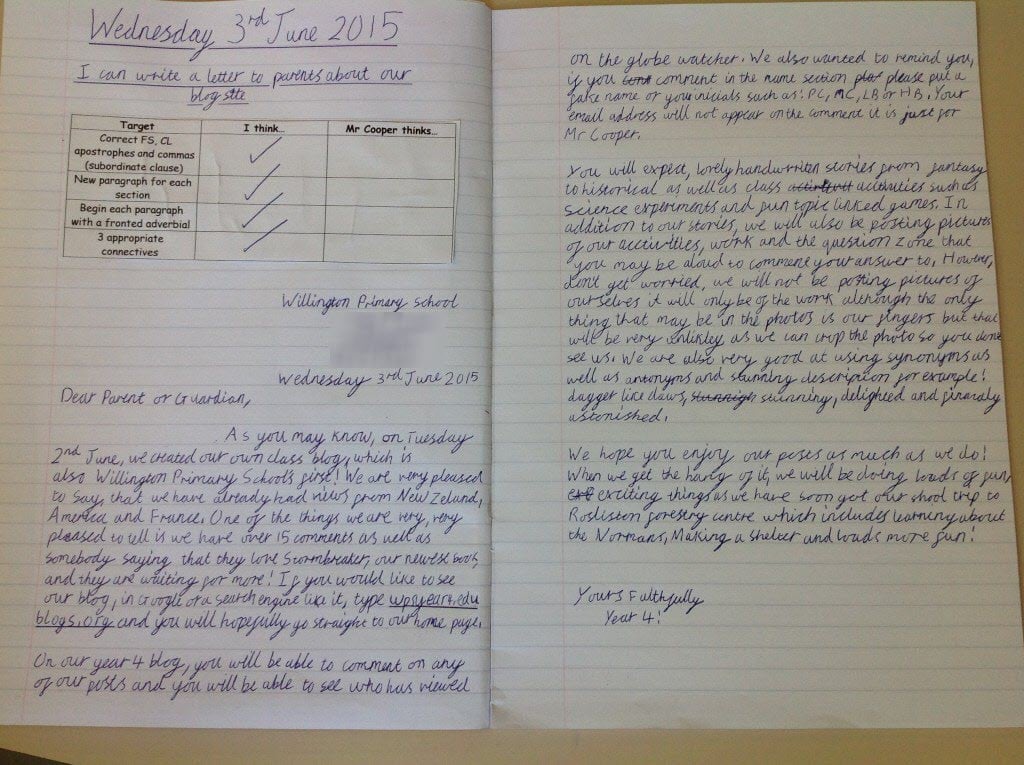 Wednesday 3rd June 2015
I can write a letter to parents about our
blog site
Target I think... Mr Cooper thinks...
Correct FS, CL
apostrophes and commas
(subordinate clause)
New paragraph for each
section
Begin each paragraph
with a fronted adverbial
3 appropriate
connectives
Willington Primary school
Wednesday 3rd June 2015
Dear Parent or Guardian,
As you may know, on Tuesday
2nd June, we created our own class blog, which is
also Willington Primary School's first! We are very pleased
to say, that we have already had views from New Zeland,
America and France. One of the things we are very, very
pleased to tell is we have over 15 comments as well as
somebody saying that they love Stormbreaker, our newest book,
and they are waiting for more! If you would like to see
our blog, in Google or a search engine like it, type wpsyear4.edu
blogs.org and you will hopefully go straight to our home page.
On our year 4 blog, you will be able to comment on any
of our posts and you will be able to see who has viewed
on the globe watcher. We also wanted to remind you,
if you comment in the name section please put a
false name or your initials such as: PC, MC, LB or HB. Your
email address will not appear on the comment it is just for
Mr Cooper.
You will expect, lovely handwriten stories from fantasy
to historical as well as class activities such as
science experiments and fun topic linked games. In
addition to our stories, we will also be posting pictures
of our acctivities, work and the question zone that
you may be aloud to comment your answer to. However,
dont get worried, we will not be posting pictures of
ourselves it will only be of the work although the only
thing that may be in the photos is our fingers but that
will be very unlikley as we can crop the photo so you dont
see us. We are also very good at using synonyms as
well as antonyms and stunning description for example:
dagger like claws, stunning, delighted and
astonished.
We hope you enjoy our poses as much as we do!
When we get the hang of it, we will be doing loads of fun,
exciting things as we have soon got our shool trip to
Rosliston forestry centre which includes learning about
the Normans, Making a shelter and loads more fun!
Yours Faithfully
Year 4!